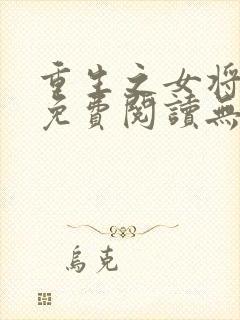 重生之女將
免費閱讀無
烏克